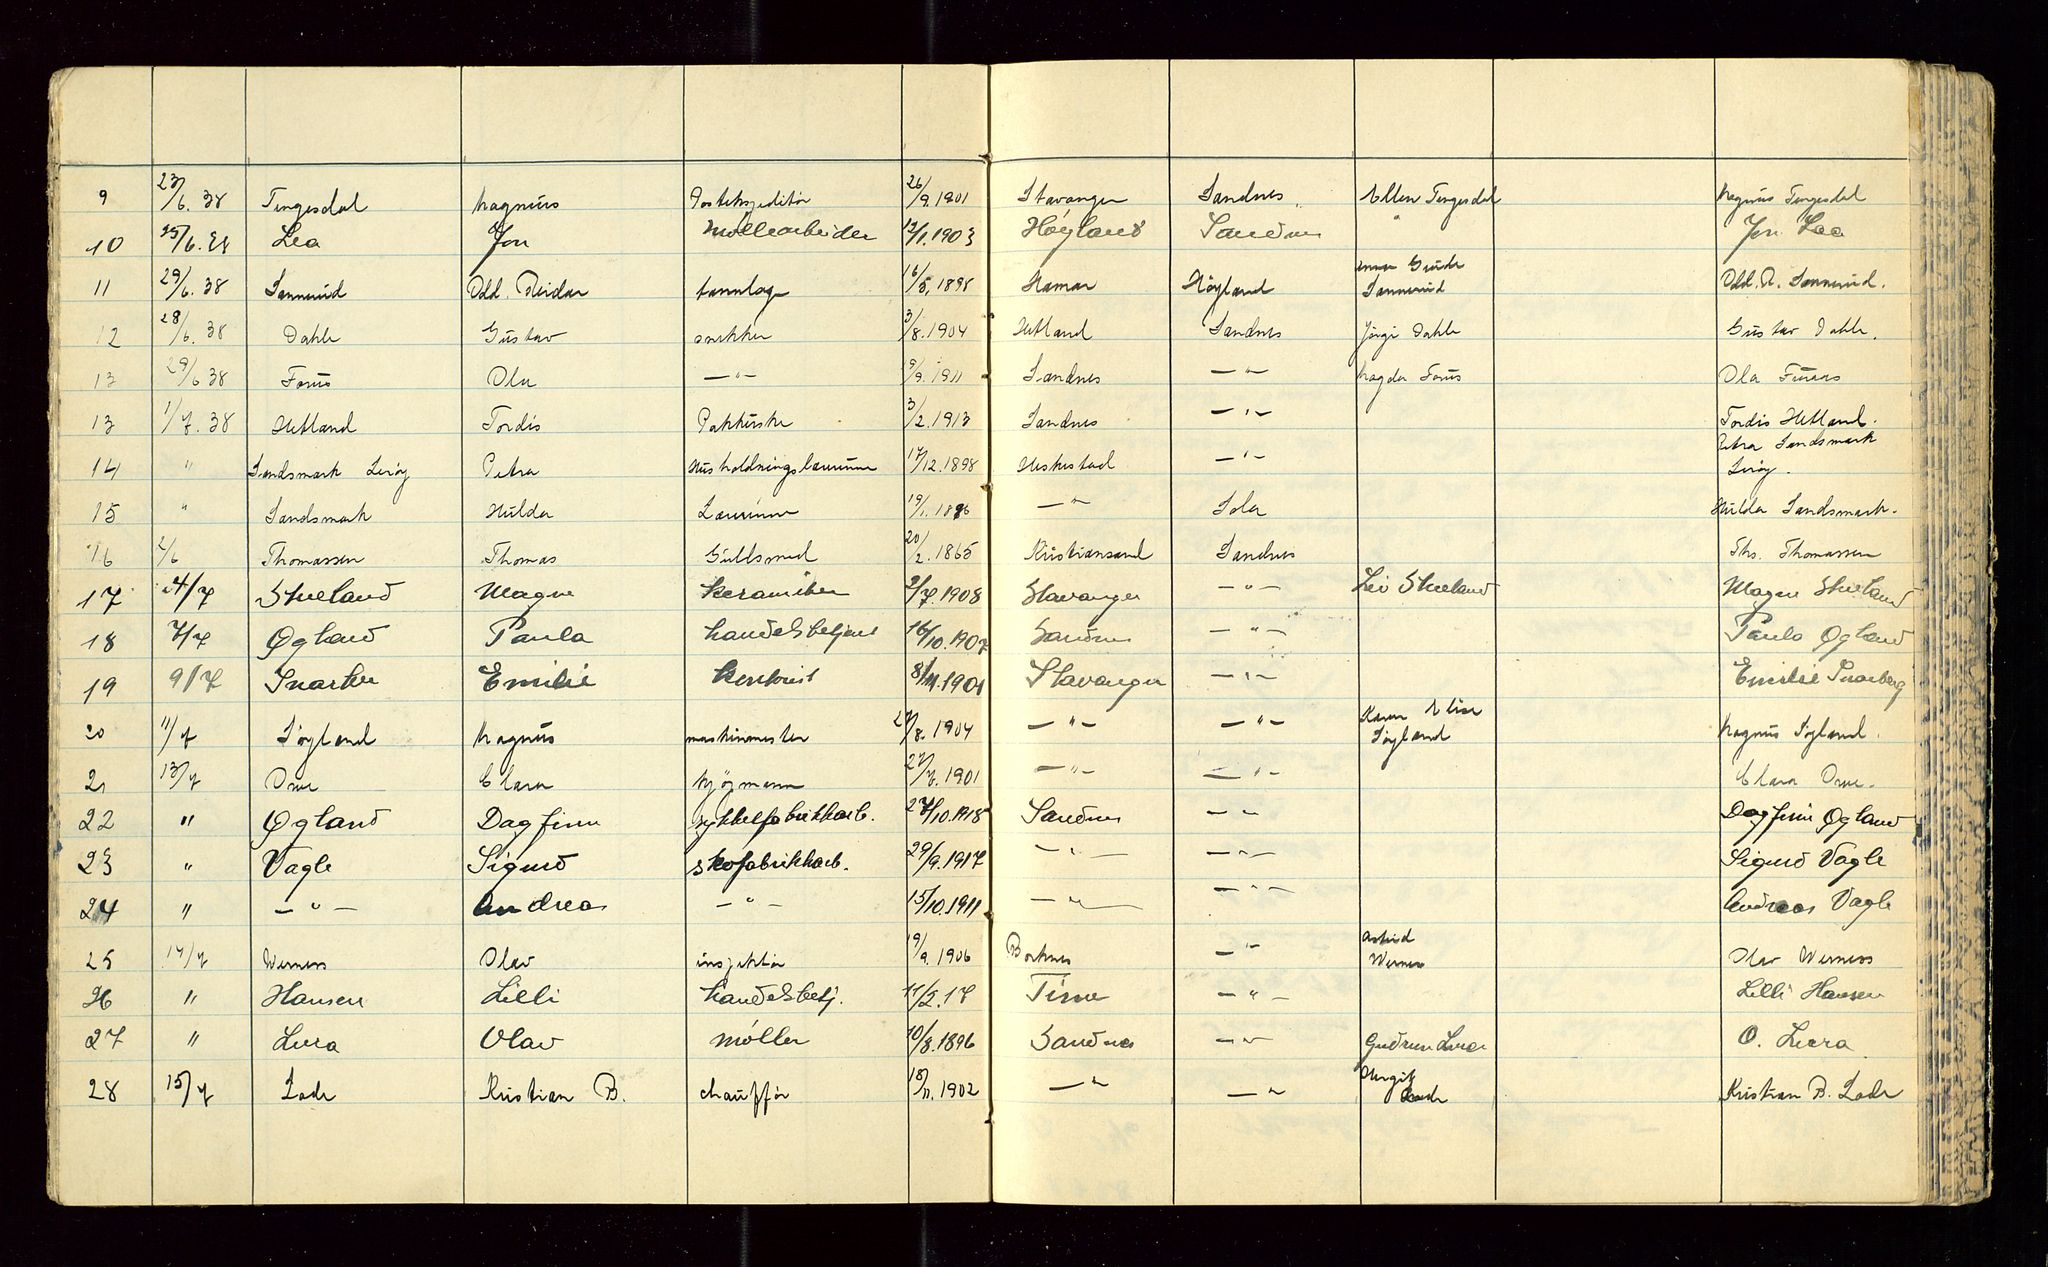 9 23/6.38 Tengesdal Magnus Postekspeditør 26/9.1901 Stavanger Sandnes Ellen Tengesdal Magnus Tengesdal
10 25/6.38 Lea Jon Møllearbeider 12/1.1903 Høyland Sandnes " Jon Lea
11 29/6.38 Sannerud Odd. Reidar tannlæge 16/5.1898 Hamar Höyland Sannerud Odd. R. Sannerud.
12 28/6.38 Dahle Gustav snekker 3/8.1904 Hetland Sandnes Jörgi Dahle Gustav Dahle.
13 29/6 38 Forus Ola —"— 9/9.1911 Sandnes —"— Magda Forus Ola Forus
13 1/7.38 Hetland Tordis Pakkerske 3/2.1913 Sandnes —"— Tordis Hetland.
14 " Sandsmark Seröy Petra Husholdningslærerinne 17/12.1898 Heskestad —"— Petra Sandsmark Seröy.
15 " Sandsmark Hulda Lærerinne 19/1.1886 —"— Sola Hulda Sandsmark.
16 2/6 Thomassen Thomas Gullsmed 20/2.1865 Kristiansand Sandnes Ths. Thomassen
17 4/7 Skeland Magne keramiker 2/7.1908 Stavanger —"— Liv Skeland Magne Skeland
18 7/7 Øgland Paula handelsbetjent 16/10.1907 Sandnes —"— Paula Øgland
19 9/7 Emilie kontorist 8/11.1901 Stavanger —"— Emilie
20 11/7 Søyland Magnus maskinmester 27/8.1904 —"— —"— Karen Elise Søyland Magnus Søyland.
21 13/7 Orre Clara kjøpmann 27/7.1901 —"— —"— Clara Orre.
22 " Øgland Dagfinn sykkelfabrikkarb. 27/10.1918 Sandnes —"— Dagfinn Øgland
23 " Vagle Sigurd skofabrikkarb. 29/9.1917 —"— —"— Sigurd Vagle
24 " —"— Andreas —"— 15/10.1911 —"— —"— Andreas Vagle
25 14/7 Werness Olav inspektør 19/9.1906 Borknes —"— Astrid Werness Olav Werness
26 " Hansen Lilli handelsbetj. 11/2.17 Time —"— Lilli Hansen
27 " Lura Olav møller 10/8.1896 Sandnes —"— Gudrun Lura O. Lura
28 15/7 Lode Kristian B. chauffør 18/11.1902 —"— —"— Margit Lode Kristian B. Lode